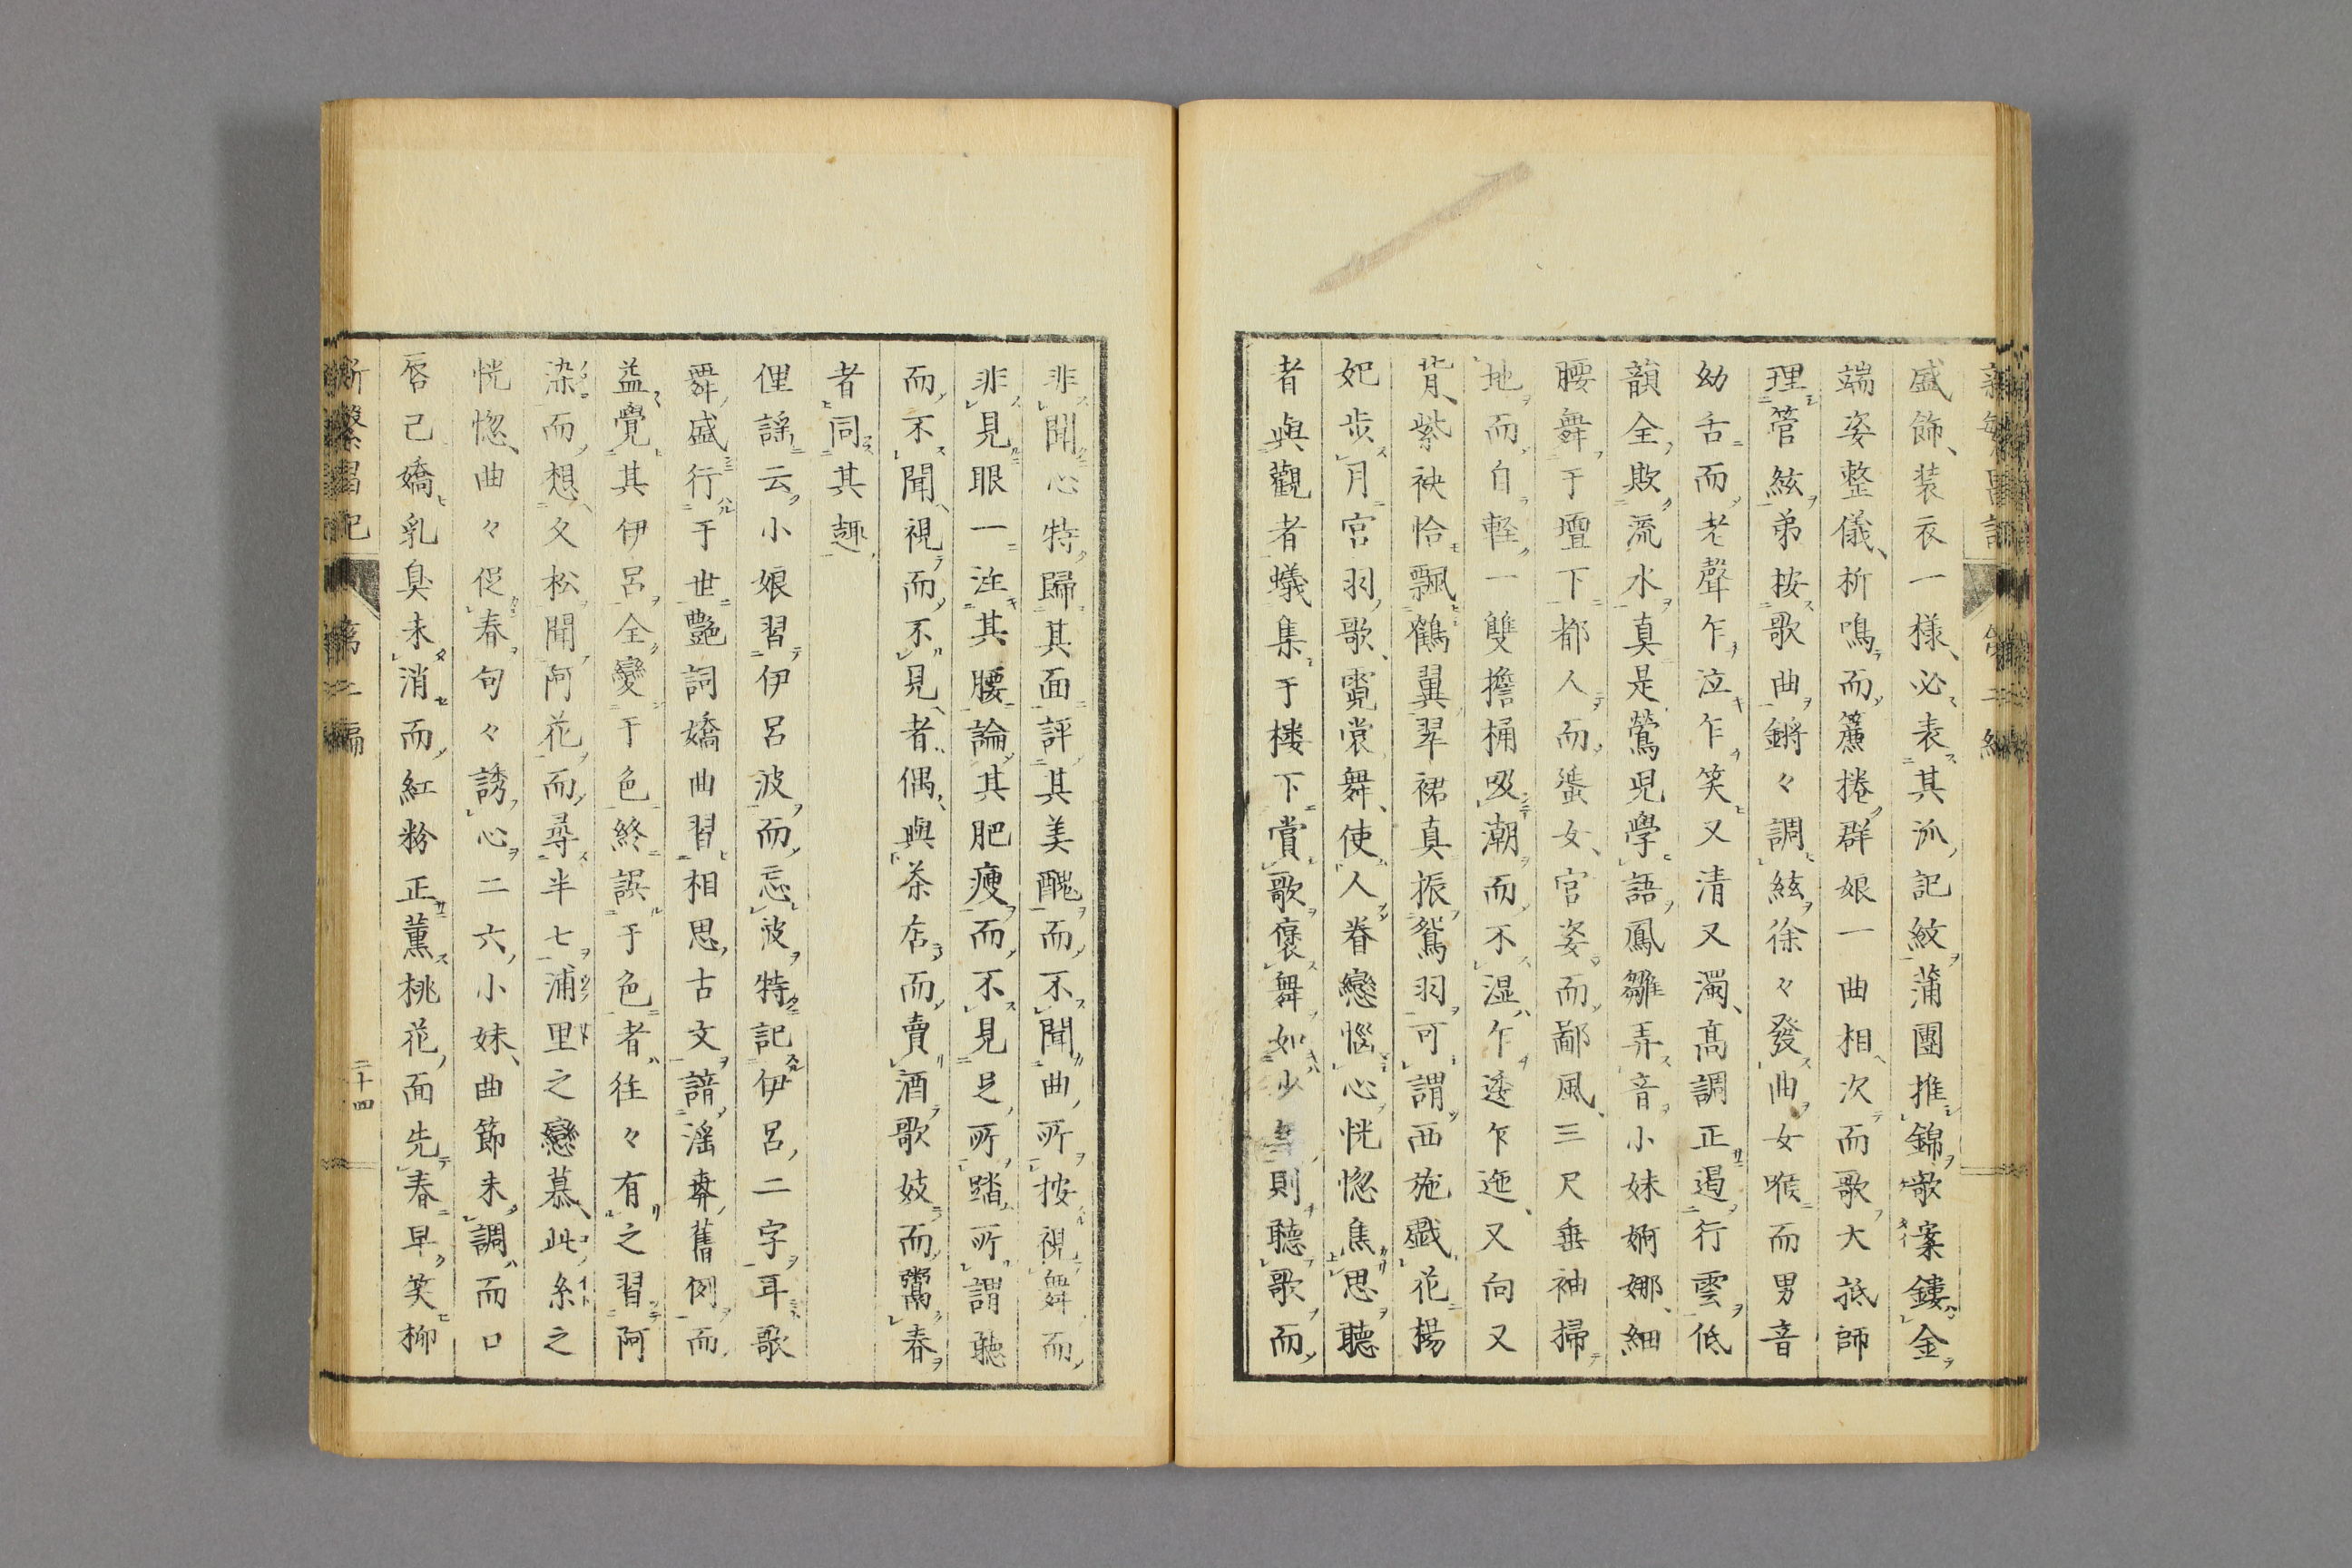 盛飾、装衣一様、必表其派、記紋蒲團推錦歌案鏤金
端姿整儀、柝鳴而簾捲群娘一曲相次而歌大抵師
理管絃弟按歌曲鏘々調絃徐々發曲女喉而男音
幼舌而老聲乍泣乍笑又清又濁、髙調正遏行雲低
韻全欺流水真是鶯児學語鳳雛弄音小妹婀娜、細
腰舞于壇下都人而蜑女、宮姿而鄙風、三尺垂袖掃
地而自軽一雙擔桶吸潮而不湿乍逶乍迤、又向又
背、紫袂恰飄鶴翼翠裙真振鴛羽可謂西施戯花楊
妃歩月宮羽歌、霓裳舞、使人眷戀惱心恍惚焦思聴
者與觀者蟻集于楼下賞歌褒舞如少年則聴歌而
非聞心特歸其面評其美醜而不聞曲所按視舞而
非見眼一注其腰論其肥痩而不見足所踏所謂聴
而不聞視而不見者偶與茶店而賣酒歌妓而鬻春
者同其趣
俚謡云小娘習伊呂波而忘波特記伊呂二字耳歌
舞盛行于世艶詞嬌曲習相思古文諳滛奔舊例而
益覺其伊呂全變于色終誤于色者徃々有之習阿
染而想久松聞阿花而尋半七浦里之戀慕、此糸之
恍惚、曲々促春句々誘心二六小妹、曲節未調而口
唇已嬌乳臭未消而紅粉正薫桃花面先春早笑柳
新繁昌記 第二編
二十四